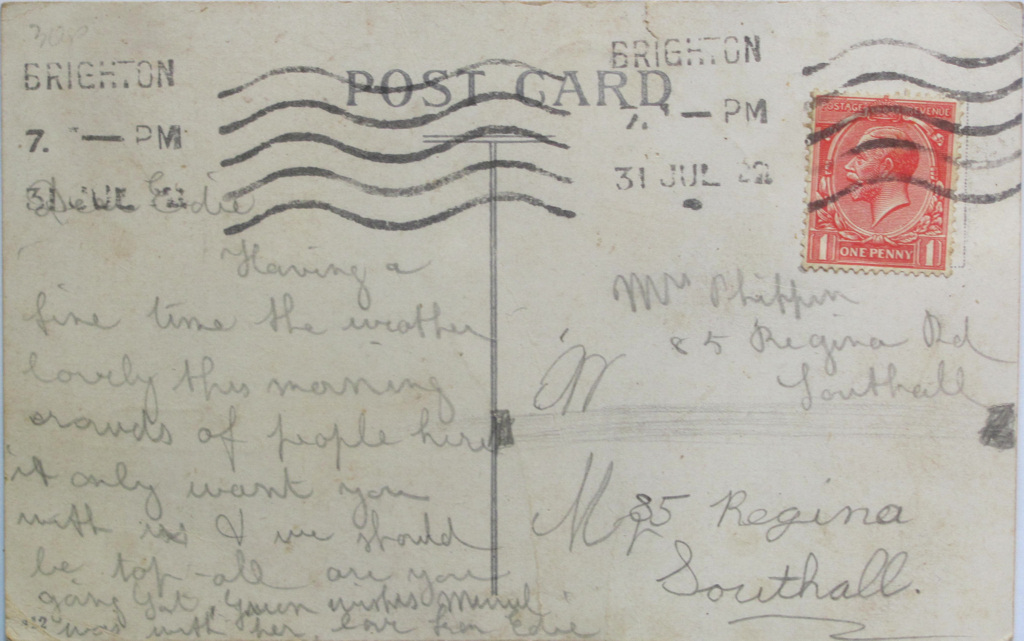 30p
BRIGHTON
7. — PM
31 JUL 22
POST CARD
BRIGHTON
7. — PM
31 JUL 22
POSTAGE REVENUE
1 ONE PENNY 1
Dear Edie
Having a
fine time the weather
lovely this morning
crowds of people here
it only want you
with us & we should
be top-all are you
going Sat,
was with her, love from Edie
Mrs Phippin
85 Regina Rd
Southall
85 Regina
Southall.